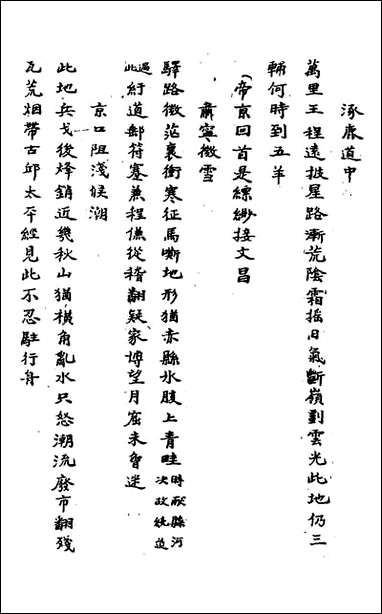 涿鹿道中
萬里王程遠披星路漸荒陰霜搖日氣斷嶺劃雲光此地仍三
輔何時到五羊
帝京回首是縹緲接文昌
肅寧微雪
驛路微茫裏衝寒征馬嘶地形猶赤縣水腹上青畦時献縣河
決改統道
過
此紆道郵符蹇兼程僕從稽翻疑家博望月窟未曾迷
京口阻淺候潮
此地兵戈後烽銷近幾秋山猶橫角亂水只怒潮流廢市翻殘
瓦荒烟帶古邱太平經見此不忍駐行舟